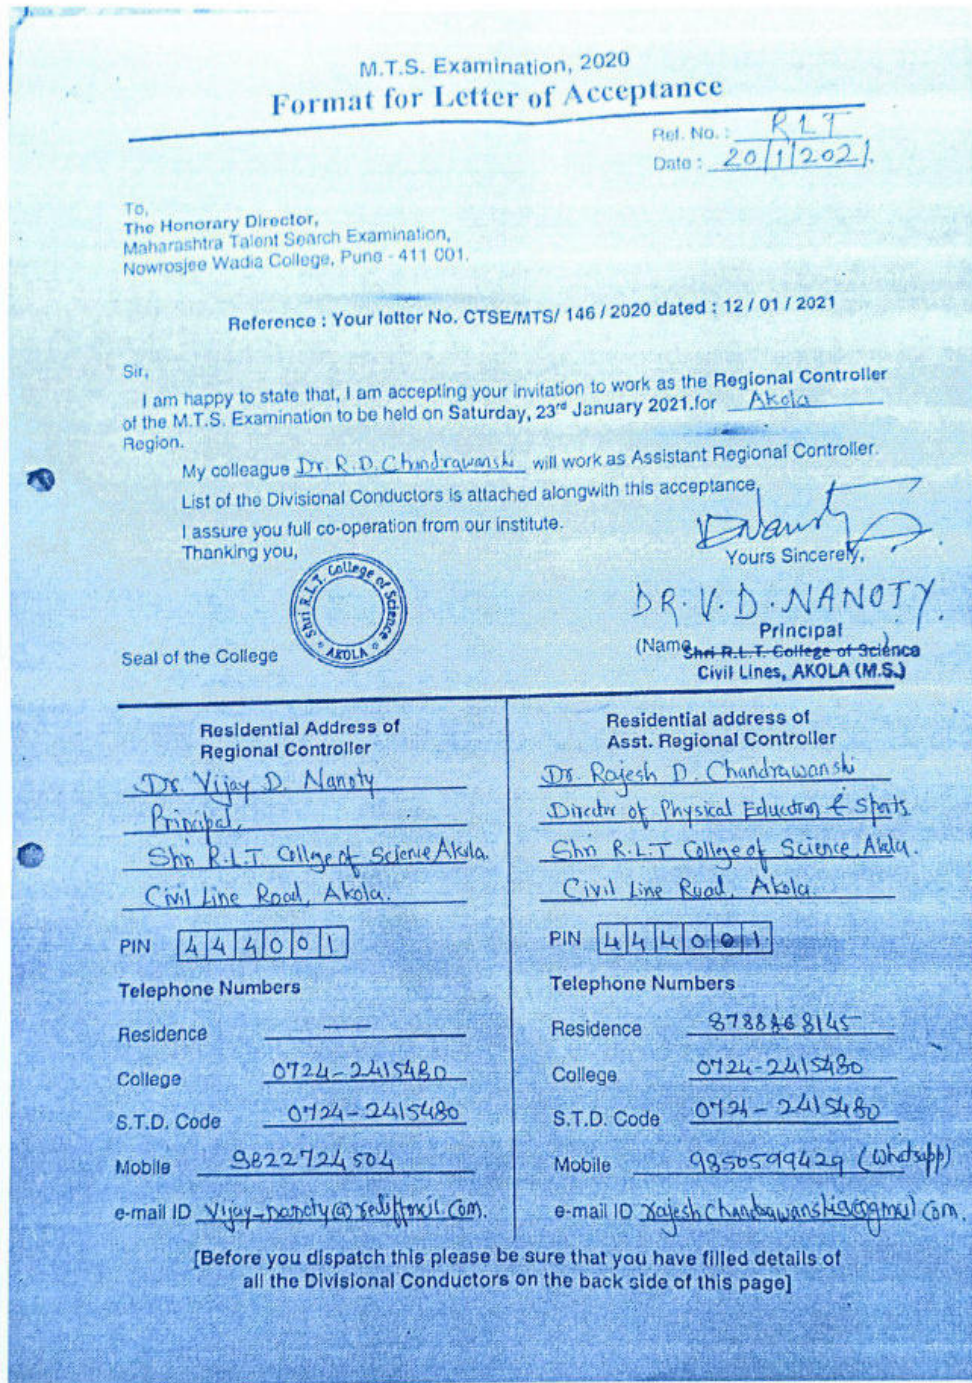 M.T.S. Examination, 2020
Format for Letter of Acceptance
Ref. No. : RLT
Date : 20/1/2021.
To,
The Honorary Director,
Maharashtra Talent Search Examination,
Nowrosjee Wadia College, Pune - 411 001.
Reference : Your letter No. CTSE/MTS/ 146 / 2020 dated : 12 / 01 / 2021
Sir,
I am happy to state that, I am accepting your invitation to work as the Regional Controller
of the M.T.S. Examination to be held on Saturday, 23rd January 2021.for Akola
Region.
My colleague Dr. R.D. Chandrawanshi will work as Assistant Regional Controller.
List of the Divisional Conductors is attached alongwith this acceptance.
I assure you full co-operation from our institute.
Thanking you,
Yours Sincerely,
Shri R.L.T. College of Science
AKOLA
DR. V. D. NANOTY
Seal of the College
(Name )
Principal
Shri R.L.T. College of Science
Civil Lines, AKOLA (M.S.)
Residential Address of
Regional Controller
Dr. Vijay D. Nanoty
Principal,
Shri R.L.T College of Science Akola.
Civil Line Road, Akola.
PIN 444001
Telephone Numbers
Residence —
College 0724-2415480
S.T.D. Code 0724-2415480
Mobile 9822724504
e-mail ID Vijay_nanoty@rediffmail.com.
Residential address of
Asst. Regional Controller
Dr. Rajesh D. Chandrawanshi
Director of Physical Education & Sports
Shri R.L.T College of Science, Akola.
Civil Line Road, Akola.
PIN 444001
Telephone Numbers
Residence 8788868145
College 0724-2415480
S.T.D. Code 0724-2415480
Mobile 9850599429 (Whatsapp)
e-mail ID
[Before you dispatch this please be sure that you have filled details of
all the Divisional Conductors on the back side of this page]